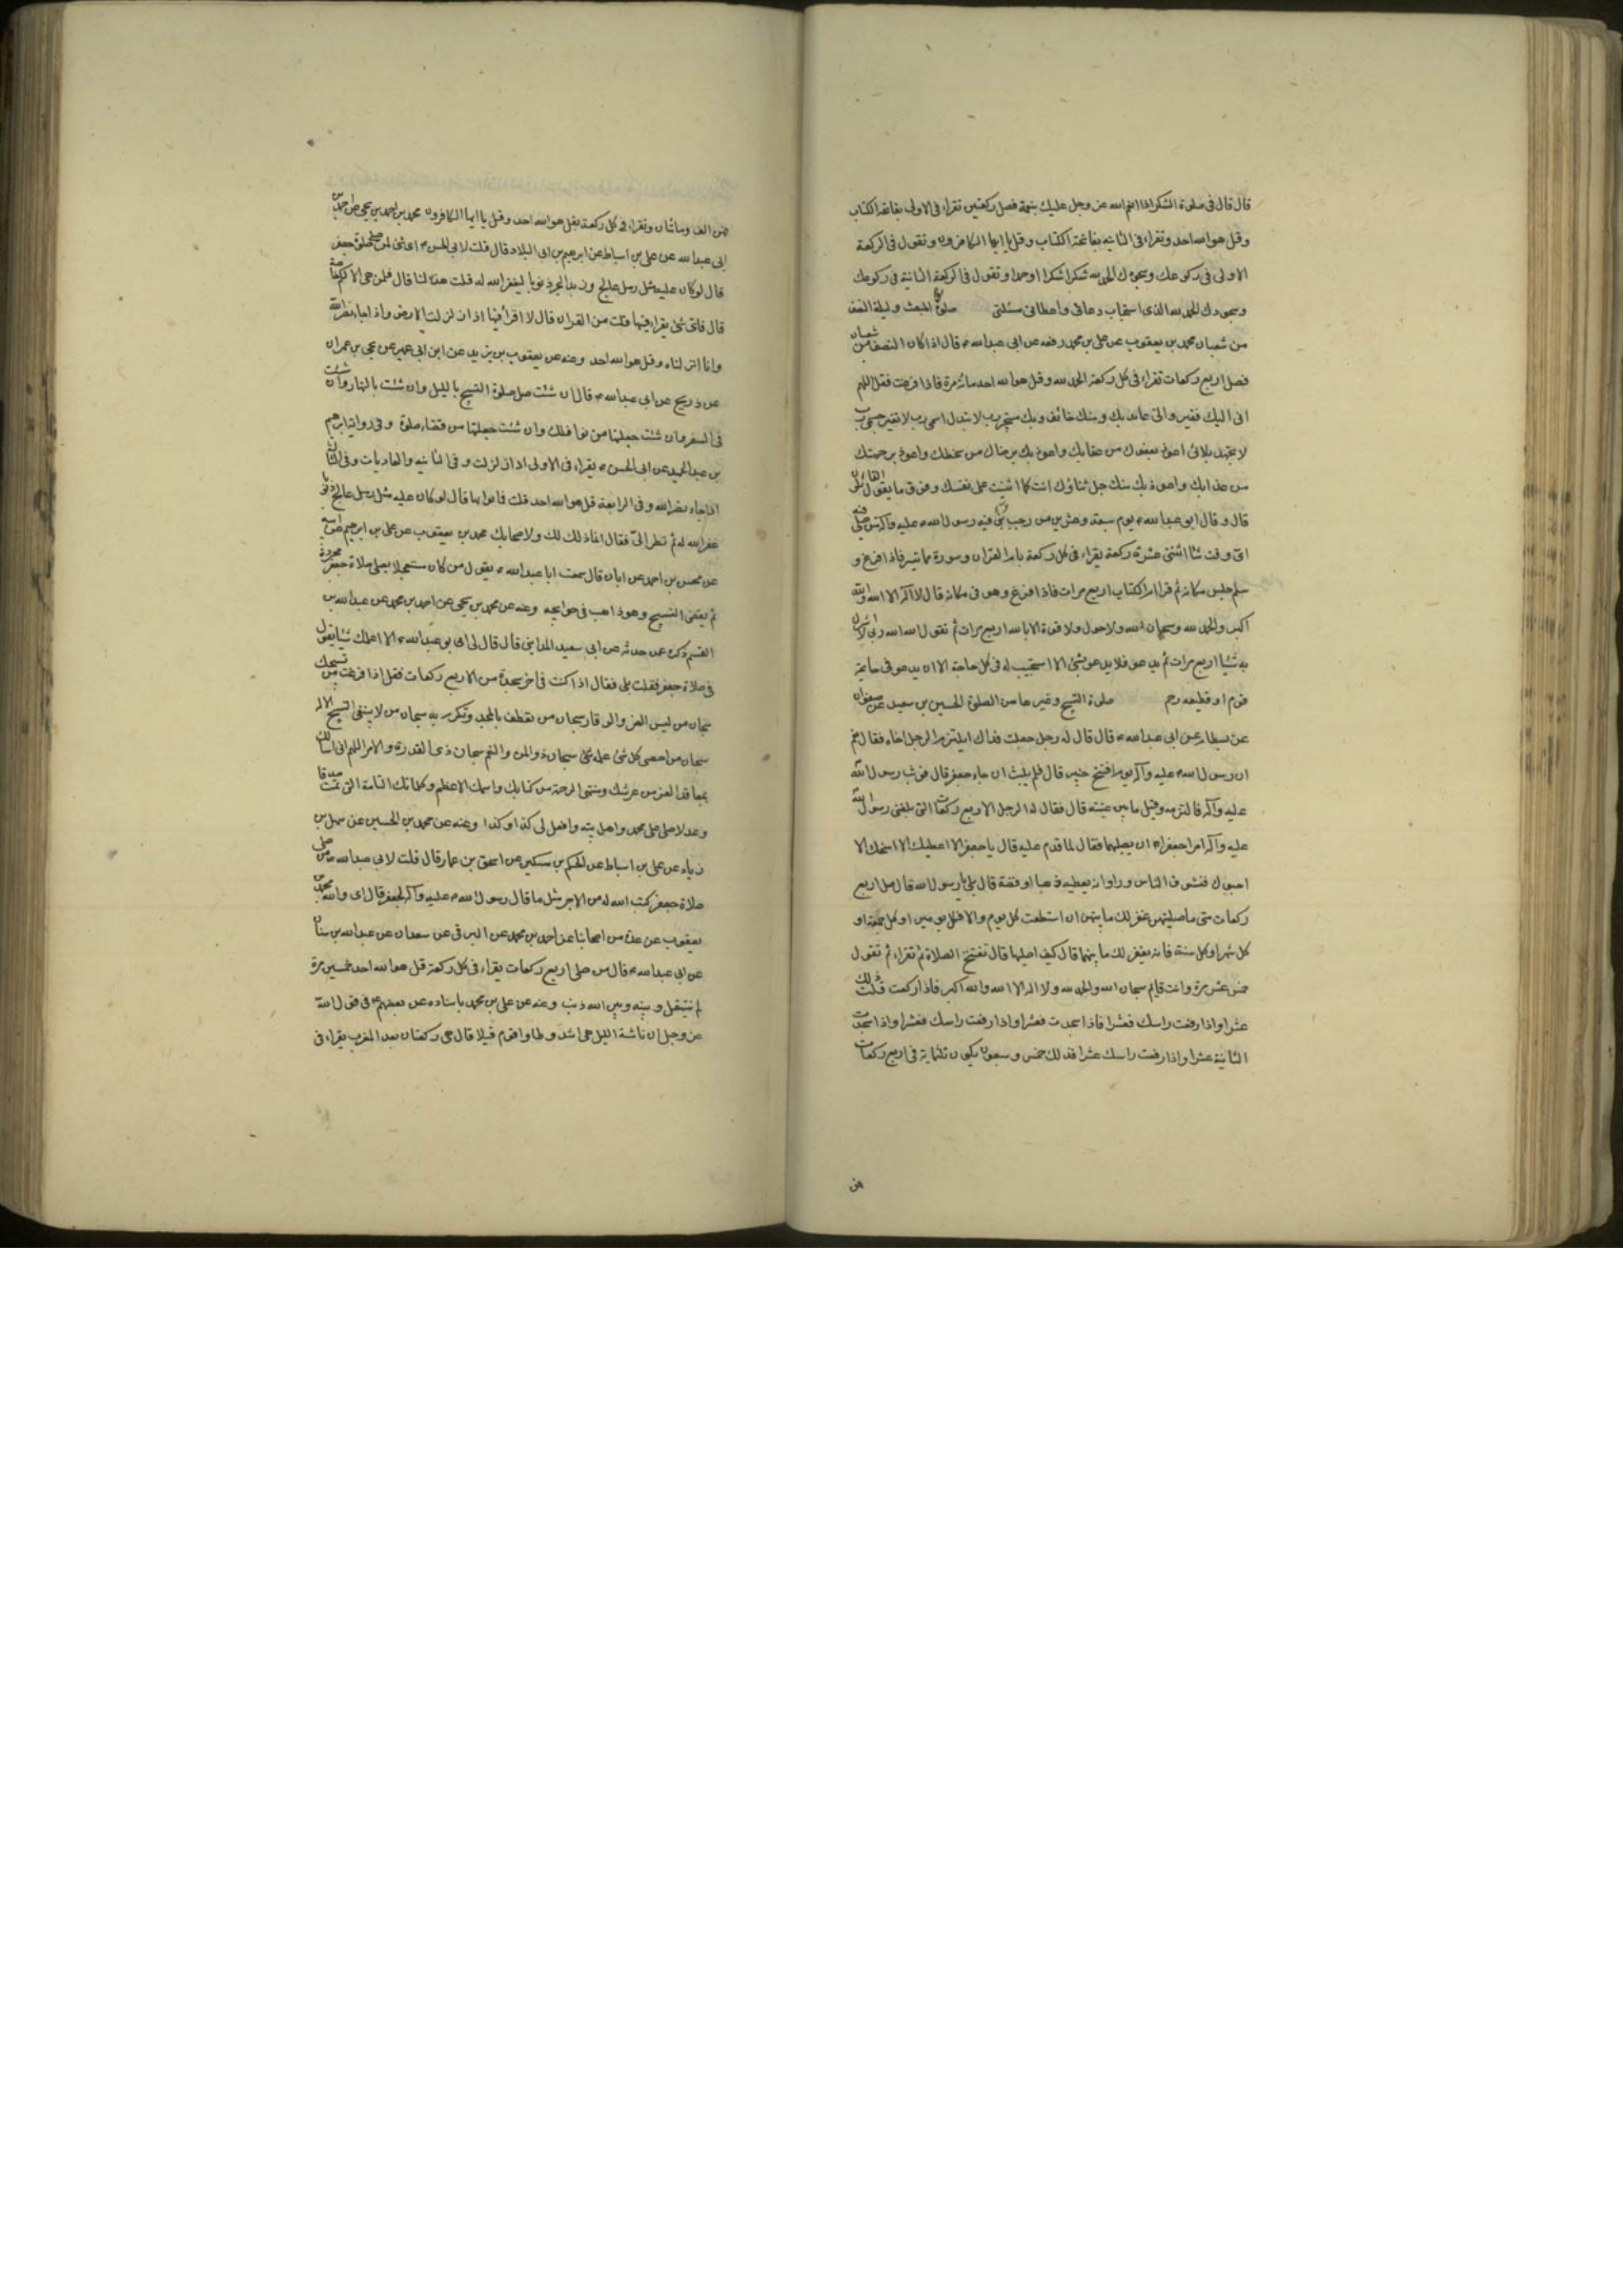 قال قال فى صلوة الشكر اذا انعم الله عز وجل عليك بنعمة فصل ركعتين تقراء فى الاولى بفاتحة الكتاب
وقل هو الله احد وتقراء فى الثانيه بفاتحة الكتاب وقل يا ايها الكافرون وتقول فى الركعة
الاولى فى ركوعك وسجودك الحمد لله شكرا شكرا وحمدا وتقول فى الركعة الثانية فى ركوعك
وسجودك الحمد لله الذى استجاب دعائى واعطانى مسئلتى صلوة المبعث وليلة النصف
من شعبان محمد بن يعقوب عن على بن محمد رفعه عن ابى عبدالله ع قال اذا كان النصف من شعبان
فصل اربع ركعات تقراء فى كل ركعة الحمد لله وقل هو الله احد مائة مرة فاذا فرغت فقل اللهم
انى اليك فقير وانى عائذ بك ومنك خائف وبك مستجير رب لا تبدل اسمى رب لا تغير جسمى رب
لا تجهد بلائى اعوذ بعفوك من عقابك واعوذ برضاك من سخطك واعوذ برحمتك
من عذابك واعوذ بك منك جل ثناؤك انت كما اثنيت على نفسك وفوق ما يقول القائلون
قال وقال ابو عبدالله ع يوم سبعة وعشرين من رجب نبئ فيه رسول الله ص عليه وآله من صلى فيه
اى وقت شاا اثنتى عشرة ركعة يقراء فى كل ركعة بام القران وسورة ما تيسر فاذا فرغ و
سلم جلس مكانه ثم قرا ام الكتاب اربع مرات فاذا فرغ وهو فى مكانه قال لا اله الا الله والله
اكبر والحمد لله وسبحان الله ولا حول ولا قوة الا بالله اربع مرات ثم تقول الله الله ربى لا اشرك
به شيئا اربع مرات ثم يدعو فلا يدعو بشئ الا استجيب له فى كل حاجة الا ان يدعو فى جايحة
قوم او قطيعه رحم صلوة التسبيح وغيرها من الصلوة الحسين بن سعيد عن صفوان
عن بسطام عن ابى عبدالله ع قال قال له رجل جعلت فداك ايلتزم الرجل اخاه فقال نعم
ان رسول الله ص عليه وآله يوم افتتح خيبر قال فلم يلبث ان جاء جعفر قال فوثب رسول الله
عليه وآله فالتزمه وقبل ما بين عينيه قال فقال له الرجل الاربع ركعات التى بلغنى رسول الله
عليه وآله امر جعفرا ان يصليها فقال لما قدم عليه قال يا جعفر الا اعطيك الا امنحك الا
احبوك فتشوف الناس وراوا انه يعطيه ذهبا او فضة قال بلى يا رسول الله قال صل اربع
ركعات متى ما صليتهن غفر لك ما بينهن ان استطعت كل يوم والا فكل يومين او كل جمعة او
كل شهر او كل سنة فانه يغفر لك ما بينهما قال كيف اصليها قال تفتتح الصلاة ثم تقراء ثم تقول
خمس عشر مرة وانت قائم سبحان الله والحمد لله ولا اله الا الله والله اكبر فاذا ركعت قلت ذلك
عشرا واذا رفعت راسك فعشرا فاذا سجدت فعشرا واذا رفعت راسك فعشرا واذا سجدت
الثانية عشرا واذا رفعت راسك عشرا فذلك خمس وسبعون يكون ثلثماية فى اربع ركعات
فهن
فهن الف ومائتان وتقراء فى كل ركعة بقل هو الله احد وقل يا ايها الكافرون محمد بن احمد بن يحيى
ابى عبدالله عن على بن اسباط عن ابرهيم بن ابى البلاد قال قلت لابى الحسن ع اى شئ لمن صلى صلوة جعفر
قال لو كان عليه مثل رمل عالج وزبد البحر ذنوبا لغفر الله له قلت هذه لنا قال فلمن هى الا لكم خاصة
قال فاى شئ يقراء فيها قلت من القران قال لا اقرأ فيها اذا زلزلت الارض واذا جاء نصر الله
وانا انزلناه وقل هو الله احد وعنه عن يعقوب بن يزيد عن ابن ابى عمير عن يحيى بن عمران
عن ذريح عن ابى عبدالله ع قال ان شئت صل صلوة التسبيح بالليل وان شئت بالنهار وان شئت
فى السفر وان شئت جعلتها من نوافلك وان شئت جعلتها من قضاء صلوة وفى رواية ابرهيم
بن عبدالحميد عن ابى الحسن ع يقراء فى الاولى اذا زلزلت وفى الثانيه والعاديات وفى الثالثة
اذا جاء نصر الله وفى الرابعة قل هو الله احد قلت فما ثوابها قال لو كان عليه مثل رمل عالج ذنوبا
غفر الله له ثم نظر الىّ فقال انما ذلك لك ولاصحابك محمد بن يعقوب عن على بن ابرهيم عن ابيه
عن محسن بن احمد عن ابان قال سمعت ابا عبدالله ع يقول من كان مستعجلا يصلى صلاة جعفر مجردة
ثم يقضى التسبيح وهو ذاهب فى حوايجه وعنه عن محمد بن يحيى عن احمد بن محمد عن عبدالله بن
القسم ذكره عمن حدثه عن ابى سعيد المداينى قال قال لى ابو عبدالله ع الا اعلمك شيئا تقوله
فى صلاة جعفر فقلت بلى فقال اذا كنت فى آخر سجدة من الاربع ركعات فقل اذا فرغت من تسبيحك
سبحان من لبس العز والوقار سبحان من تعطف بالمجد وتكرم به سبحان من لا ينبغى التسبيح الا له
سبحان من احصى كل شئ علمه سبحان ذى المن والنعم سبحان ذى القدرة والامر اللهم انى اسالك
بمعاقد العز من عرشك ومنتهى الرحمة من كتابك واسمك الاعظم وكلماتك التامة التى تمت صدقا
وعدلا صلى على محمد واهل بيته وافعل لى كذا وكذا وعنه عن محمد بن الحسين عن سهل بن
زياد عن على بن اسباط عن الحكم بن مسكين عن اسحق بن عمار قال قلت لابى عبدالله ع من صلى
صلاة جعفر كتب الله له من الاجر مثل ما قال رسول الله ص عليه وآله لجعفر قال اى والله محمد بن
يعقوب عن عدة من اصحابنا عن احمد بن محمد عن البرقى عن سعدان عن عبدالله بن سنان
عن ابى عبدالله ع قال من صلى اربع ركعات يقراء فى كل ركعة قل هو الله احد خمسين مرة
لم ينتقل وبينه وبين الله ذنب وعنه عن على بن محمد باسناده عن بعضهم ع فى قول الله
عز وجل ان ناشئة الليل هى اشد وطا واقوم قيلا قال هى ركعتان بعد المغرب يقراء فى